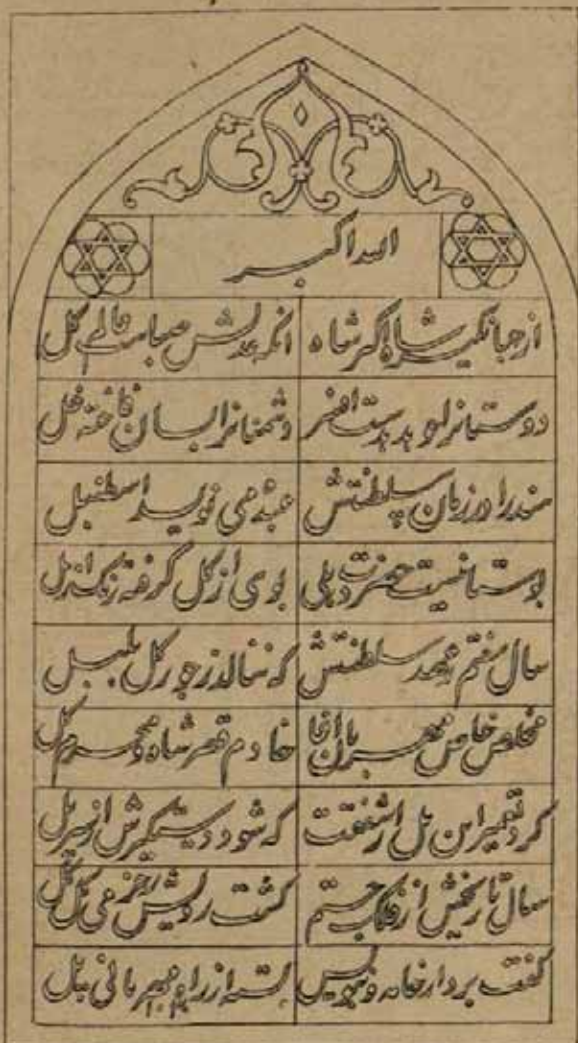 الله اکبر
از جهانگیر شاه اکبر شاه انکه عدلش صباست عالم گل
دوستانرا چو هدهدست افسر دشمنانرا بسان فاخته غل
هند را در زمان سلطنتش عبده می نویسد اسطنبل
بوستانیست حضرت دهلی بوی از گل گرفته رنگ از مل
سال هفتم ز عهد سلطنتش که ننالد ز جور گل بلبل
مخلص خاص مهربان اغا خادم قصر شاه و محرم کل
کرد تعمیر این پل از شفقت که شود دستگیرش از سر پل
سال تاریخش از فلک جستم گشت رویش ز خرمی گل گل
گفت بردار خامه و بنویس بسته از راه مهربانی پل